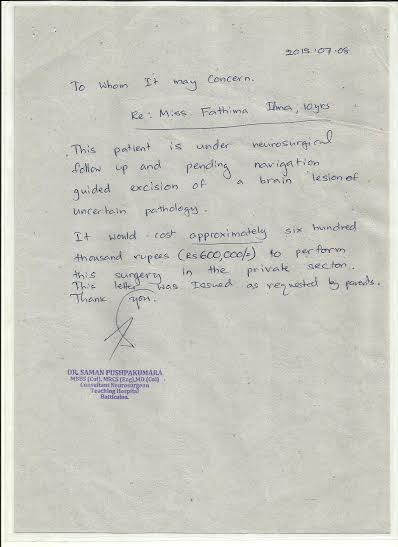 2015.07.08
To Whom It may Concern.
Re: Miss. Fathima Ilma, 10yrs
This patient is under neurosurgical
follow up and pending navigation
guided excision of a brain lesion of
uncertain pathology.
It would cost approximately six hundred
thousand rupees (Rs600,000/=) to perform
this surgery in the private sector.
This letter was Issued as requested by parents.
Thank you.
DR. SAMAN PUSHPAKUMARA
MBBS (Col), MRCS (Eng),MD (Col)
Consultant Neurosurgeon
Teaching Hospital
Batticaloa.